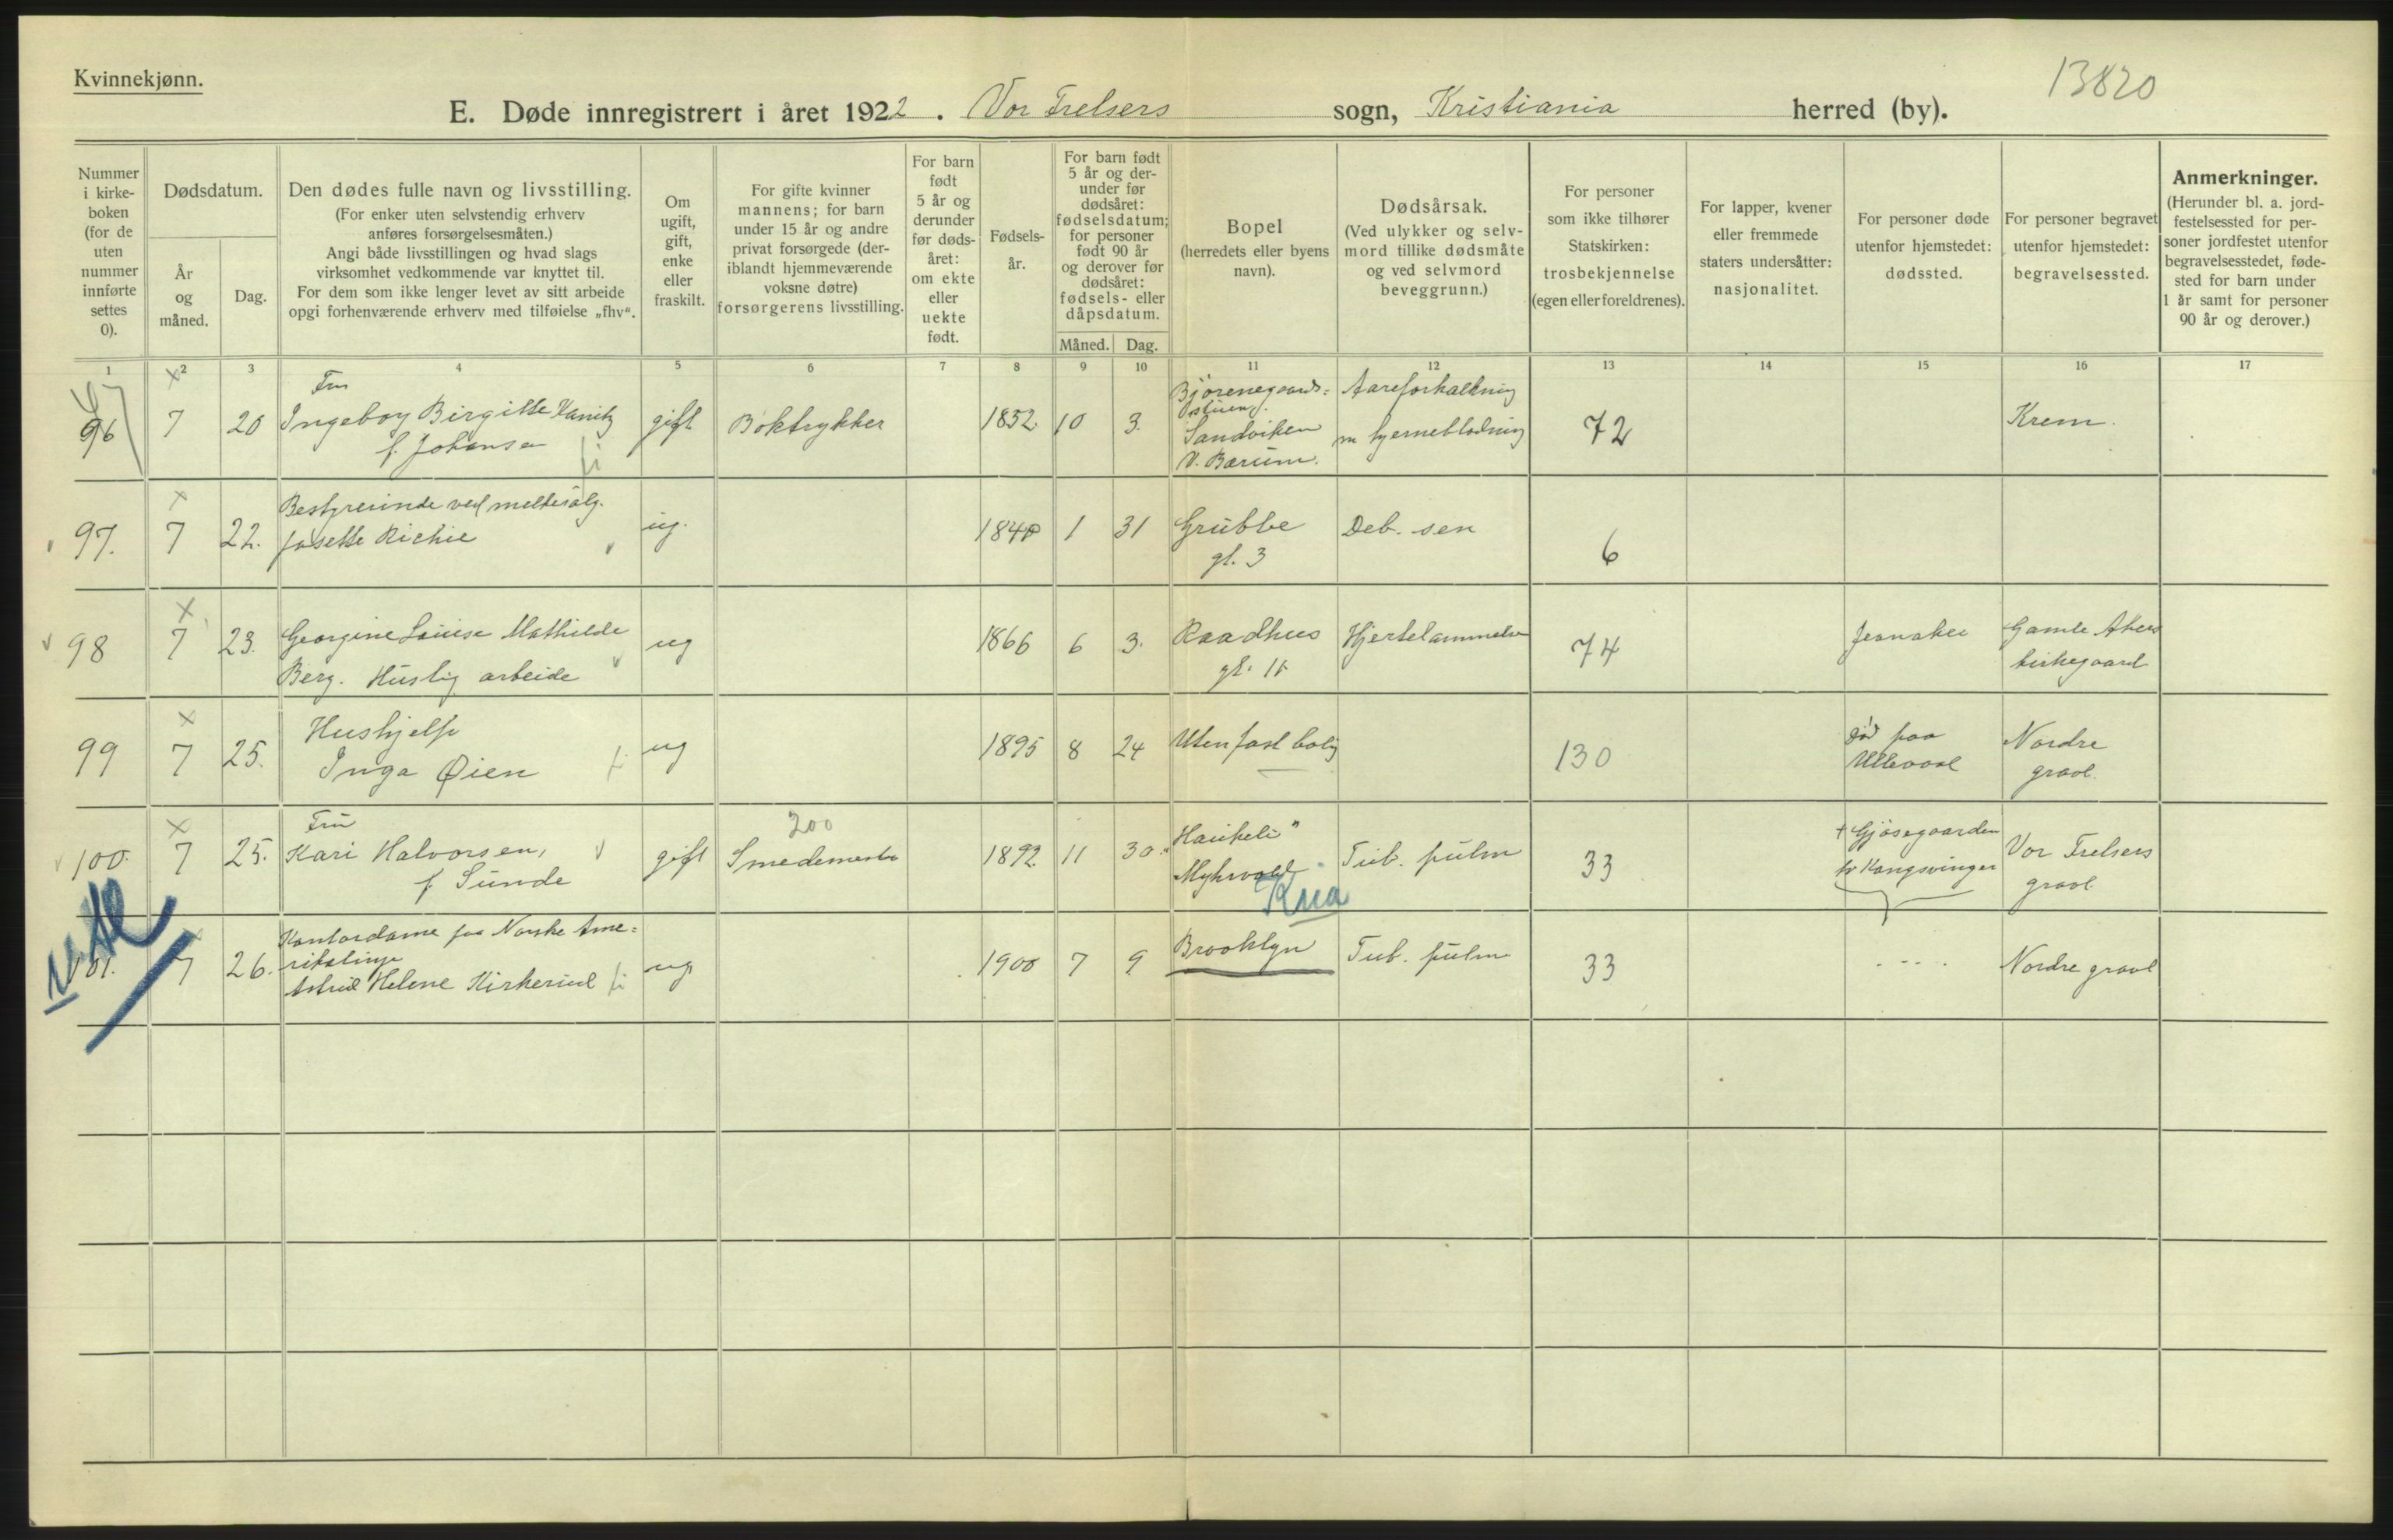 Kvinnekjønn.
13820
E. Døde innregistrert i året 1922. Vor Frelsers sogn, Kristiania herred (by).
Nummer
i kirke-
boken
(for de
uten
nummer
innførte
settes
0).
Dødsdatum.
År
og
måned.
Dag.
Den dødes fulle navn og livsstilling.
(For enker uten selvstendig erhverv
anføres forsørgelsesmåten.)
Angi både livsstillingen og hvad slags
virksomhet vedkommende var knyttet til.
For dem som ikke lenger levet av sitt arbeide
opgi forhenværende erhverv med tilføielse „fhv“.
Om
ugift,
gift,
enke
eller
fraskilt.
For gifte kvinner
mannens; for barn
under 15 år og andre
privat forsørgede (der-
iblandt hjemmeværende
voksne døtre)
forsørgerens livsstilling.
For barn
født
5 år og
derunder
før døds-
året:
om ekte
eller
uekte
født.
Fødsels-
år.
For barn født
5 år og der-
under før
dødsåret:
fødselsdatum;
for personer
født 90 år
og derover før
dødsåret:
fødsels- eller
dåpsdatum.
Måned. Dag.
Bopel
(herredets eller byens
navn).
Dødsårsak.
(Ved ulykker og selv-
mord tillike dødsmåte
og ved selvmord
beveggrunn.)
For personer
som ikke tilhører
Statskirken:
trosbekjennelse
(egen eller foreldrenes).
For lapper, kvener
eller fremmede
staters undersåtter:
nasjonalitet.
For personer døde
utenfor hjemstedet:
dødssted.
For personer begravet
utenfor hjemstedet:
begravelsessted.
Anmerkninger.
(Herunder bl. a. jord-
festelsessted for per-
soner jordfestet utenfor
begravelsesstedet, føde-
sted for barn under
1 år samt for personer
90 år og derover.)
1 2 3 4 5 6 7 8 9 10 11 12 13 14 15 16 17
96 7 20
Fru
Ingeborg Birgitte
f. Johansen
gift Boktrykker 1852 10 3.
Sandviken
V. Bærum.
Aareforkalkning
m hjerneblødning
72 Krem.
97. 7 22.
Bestyrerinde ved meltesalg.
Josette Richie
ug. 1840 1 31
Grubbe
gt. 3
Deb. sen
6
98 7 23.
Georgine Louise Mathilde
Berg. Huslig arbeide
ug 1866 6 3.
Raadhus
gt. 11
Hjertelammelse
74
Gamle Akers
kirkegaard
99 7 25.
Hushjelp
Inga Øien
ug 1895 8 24 Uten fast bolig
130
död paa
Ullevaal
Nordre
gravl.
100. 7 25.
Fru
Kari Halvorsen,
f. Sunde
gift
200
Smedemester
1892 11 30.
"Haukeli"
Myhrvold
Kna
Tub. pulm 33
+ Gjøsegaarden
pr Kongsvinger
Vor Frelsers
gravl.
utl
101. 7 26.
Kontordame paa Norske Ame=
rikalinje
Astrid Helene Kirkerud
ug 1900 7 9 Brooklyn Tub. pulm 33 - - - - Nordre gravl